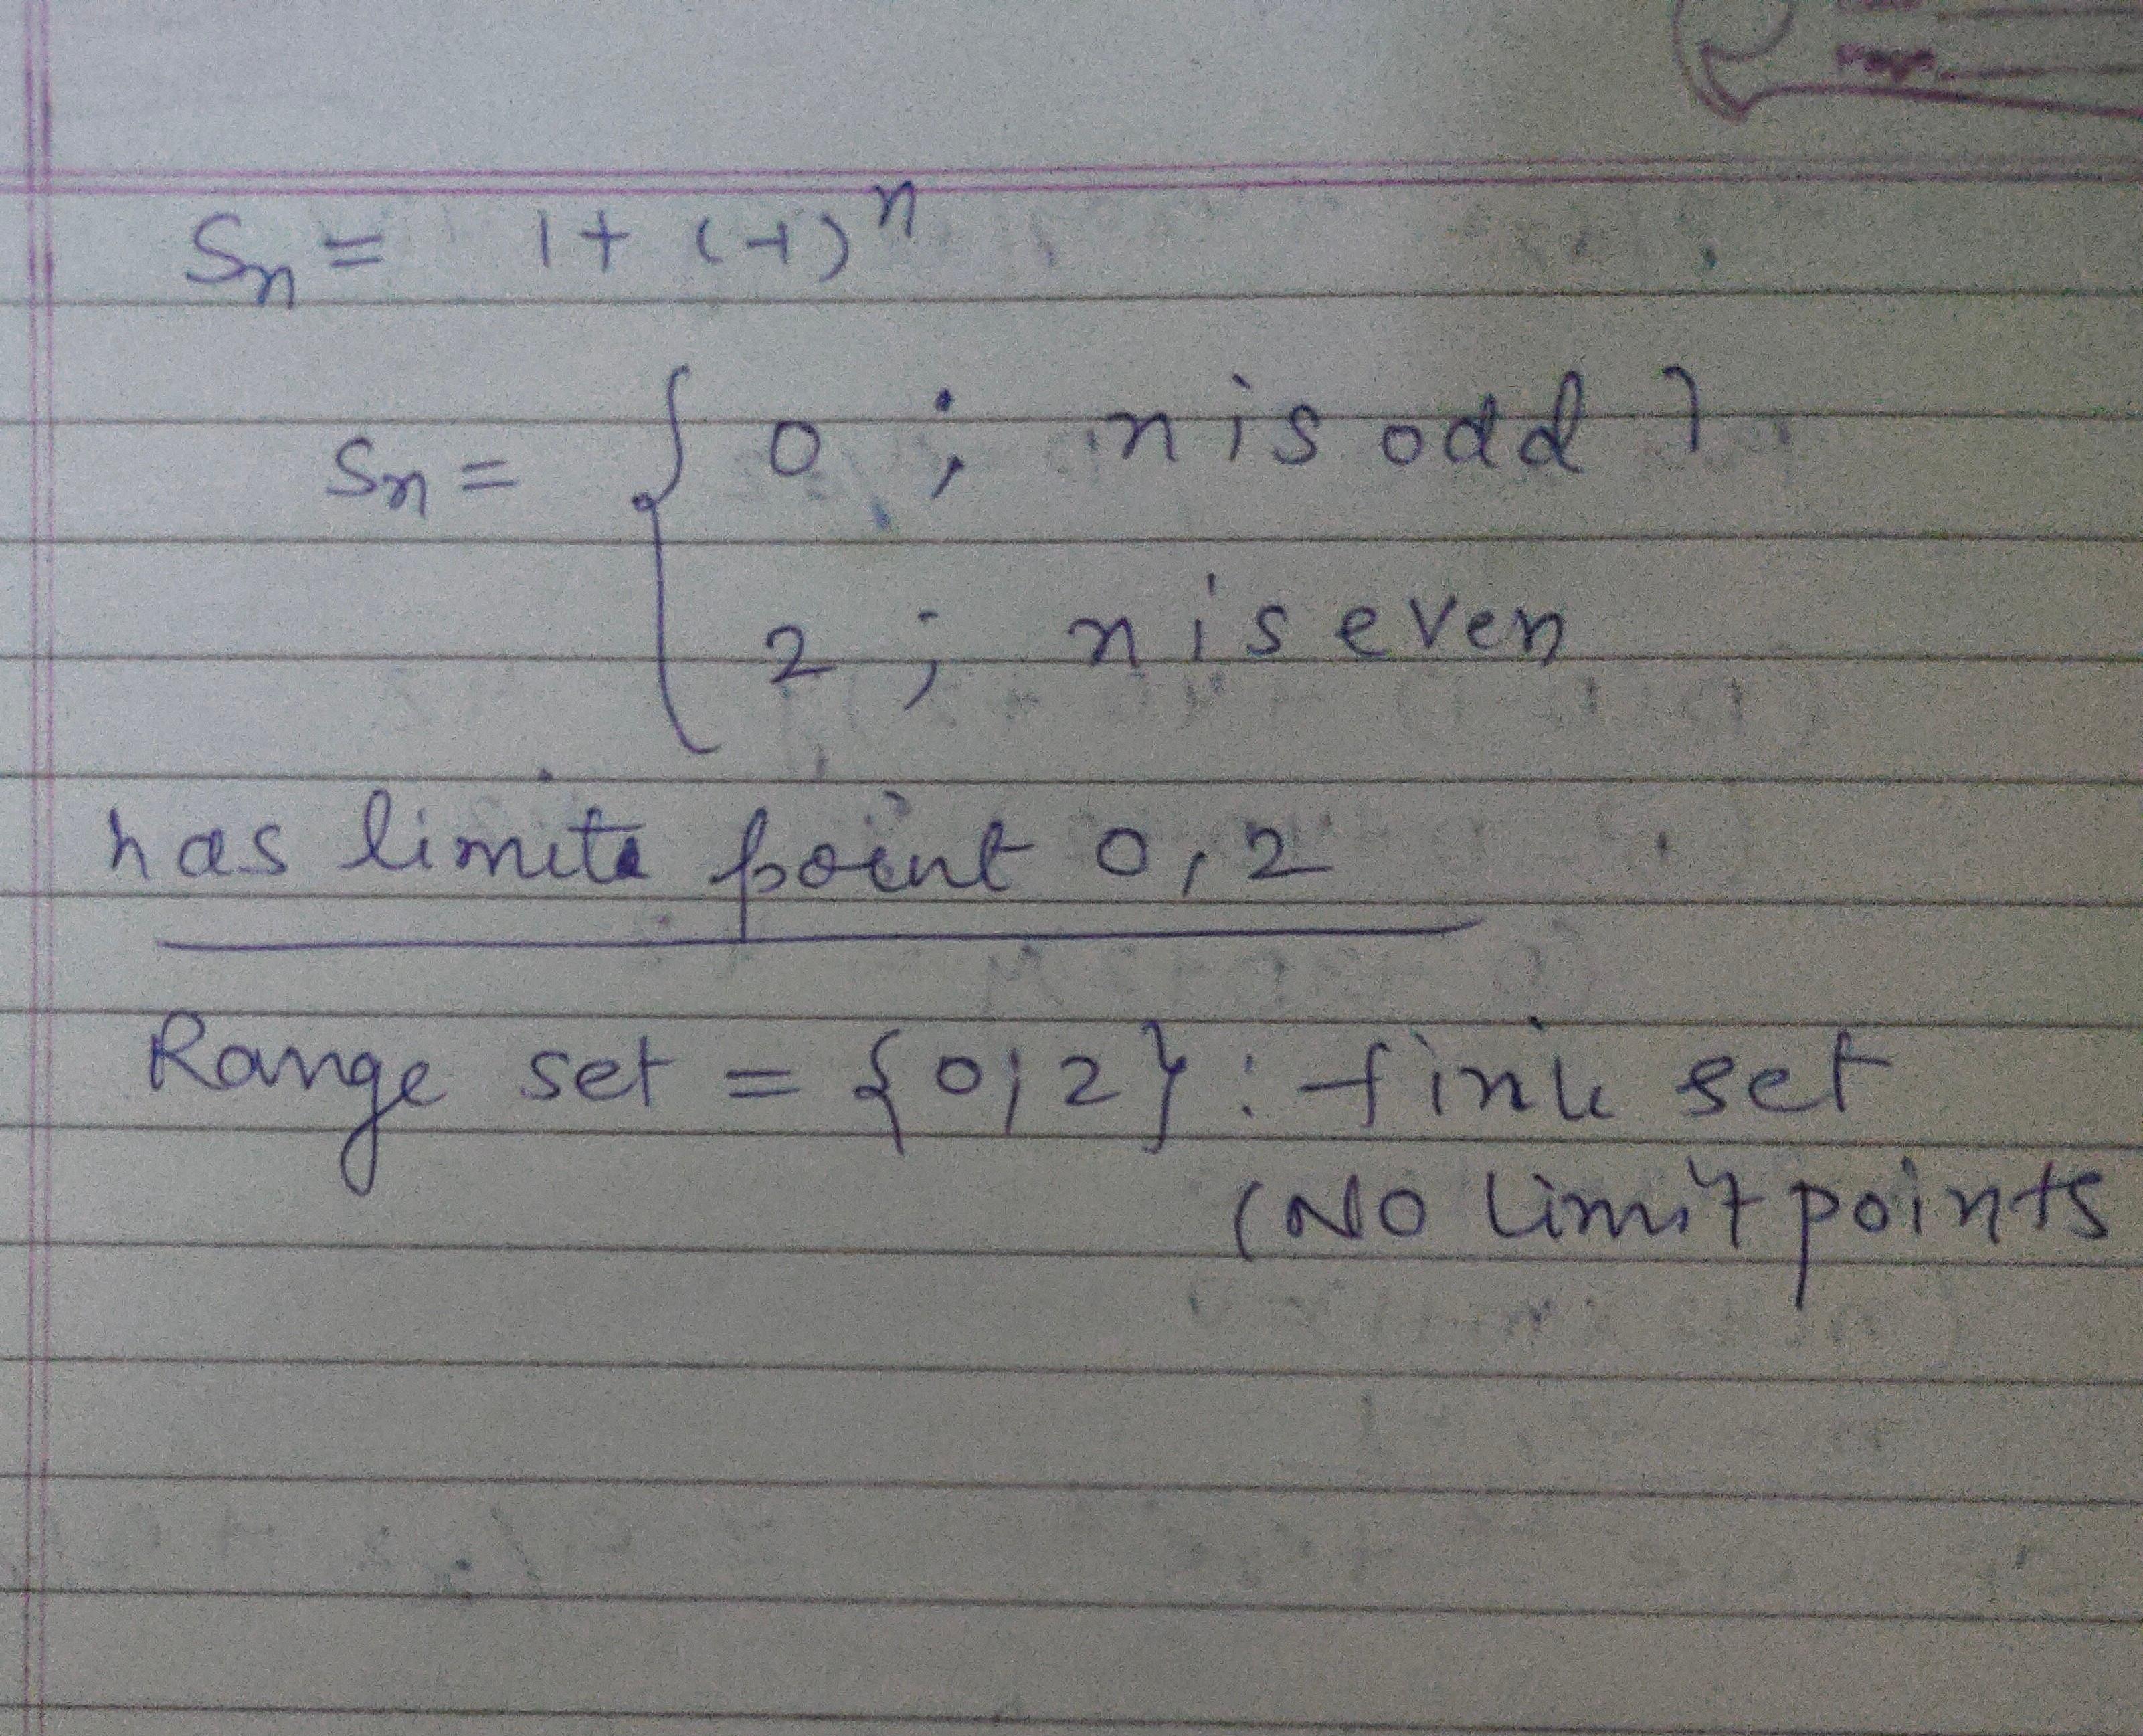 Page
Sn = 1 + (-1)^n
Sn = { 0 ; n is odd
2 ; n is even
has limits point 0, 2
Range set = {0, 2} : finite set
(No limit points